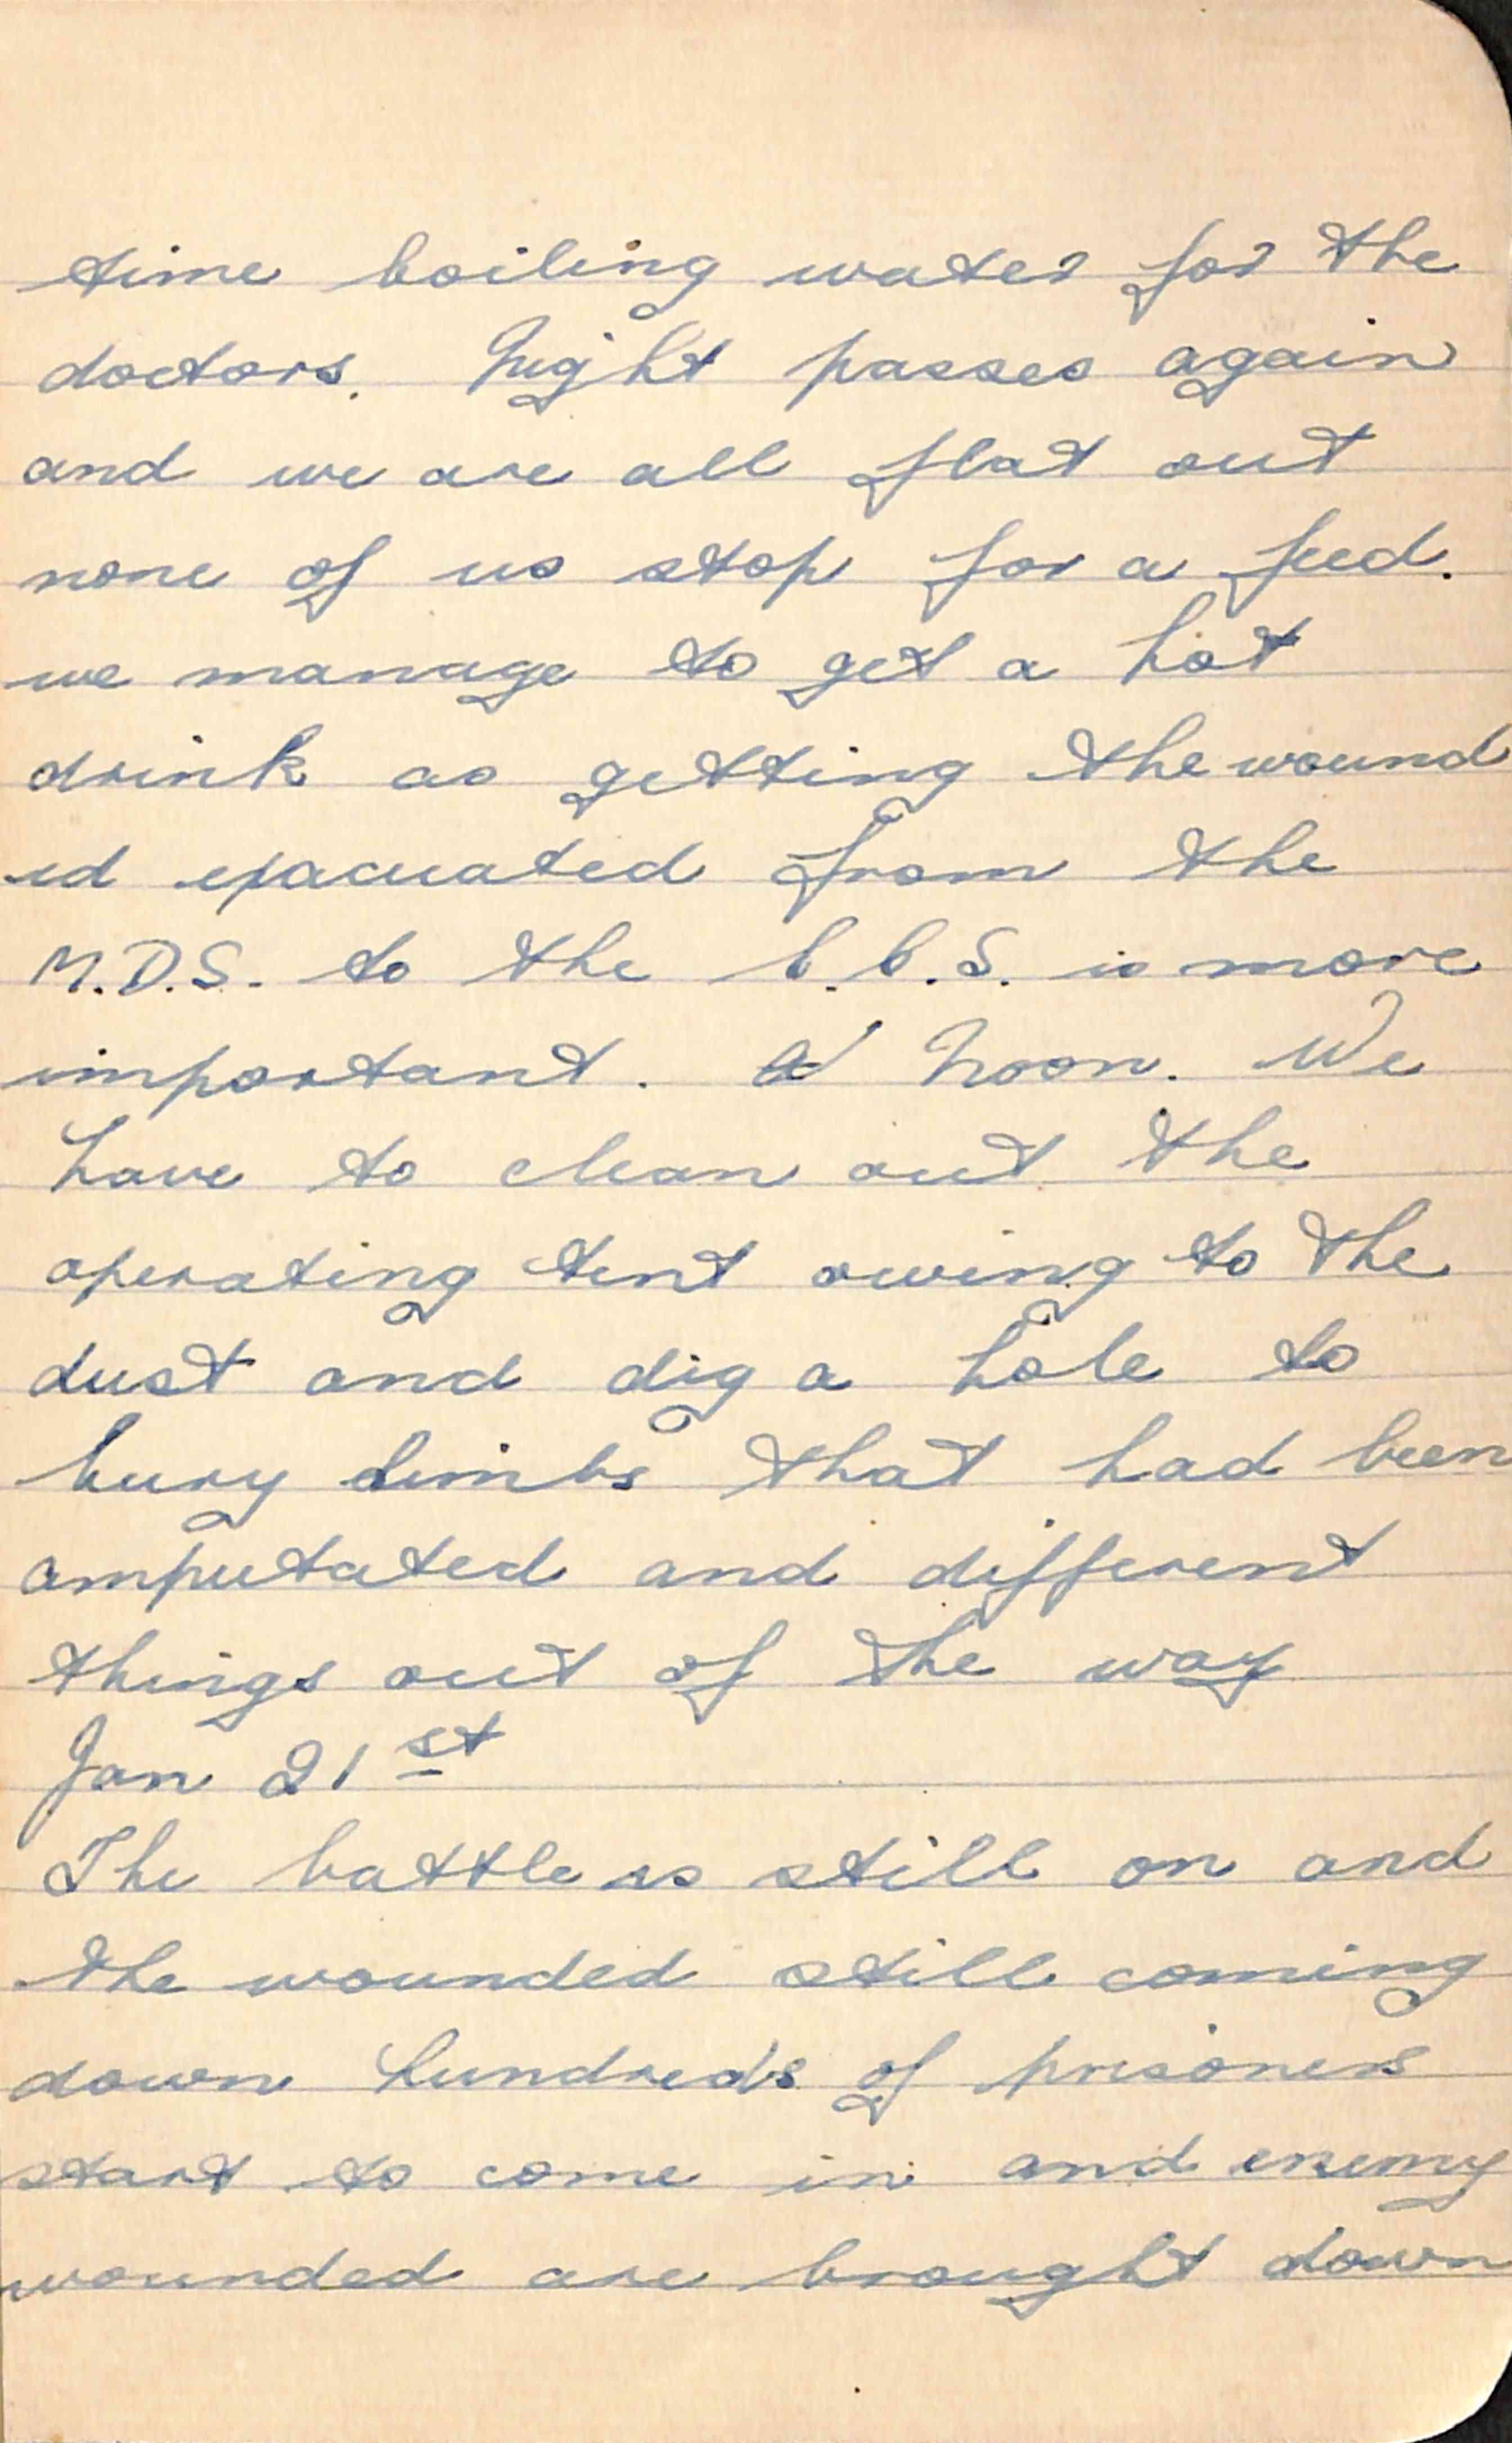 time boiling water for the
doctors. Night passes again
and we are all flat out
none of us stop for a feed.
we manage to get a hot
drink as getting the wound
ed evacuated from the
M.D.S. to the C.C.S. is more
important. At Noon. We
have to clean out the
operating tent owing to the
dust and dig a hole to
bury limbs that had been
amputated and different
things out of the way
Jan 21st
The battle is still on and
the wounded still coming
down hundreds of prisoners
start to come in and enemy
wounded are brought down